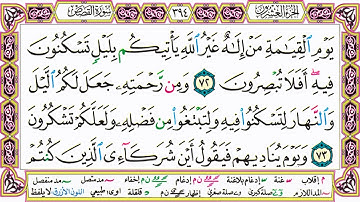 الجزء العشرون ٣٩٤ سورة القصص
يَوْمِ الْقِيَامَةِ مَنْ إِلَٰهٌ غَيْرُ اللَّهِ يَأْتِيكُم بِلَيْلٍ تَسْكُنُونَ
فِيهِ ۖ أَفَلَا تُبْصِرُونَ ٧٢ وَمِن رَّحْمَتِهِ جَعَلَ لَكُمُ اللَّيْلَ
وَالنَّهَارَ لِتَسْكُنُوا فِيهِ وَلِتَبْتَغُوا مِن فَضْلِهِ وَلَعَلَّكُمْ تَشْكُرُونَ
٧٣ وَيَوْمَ يُنَادِيهِمْ فَيَقُولُ أَيْنَ شُرَكَائِيَ الَّذِينَ كُنتُمْ